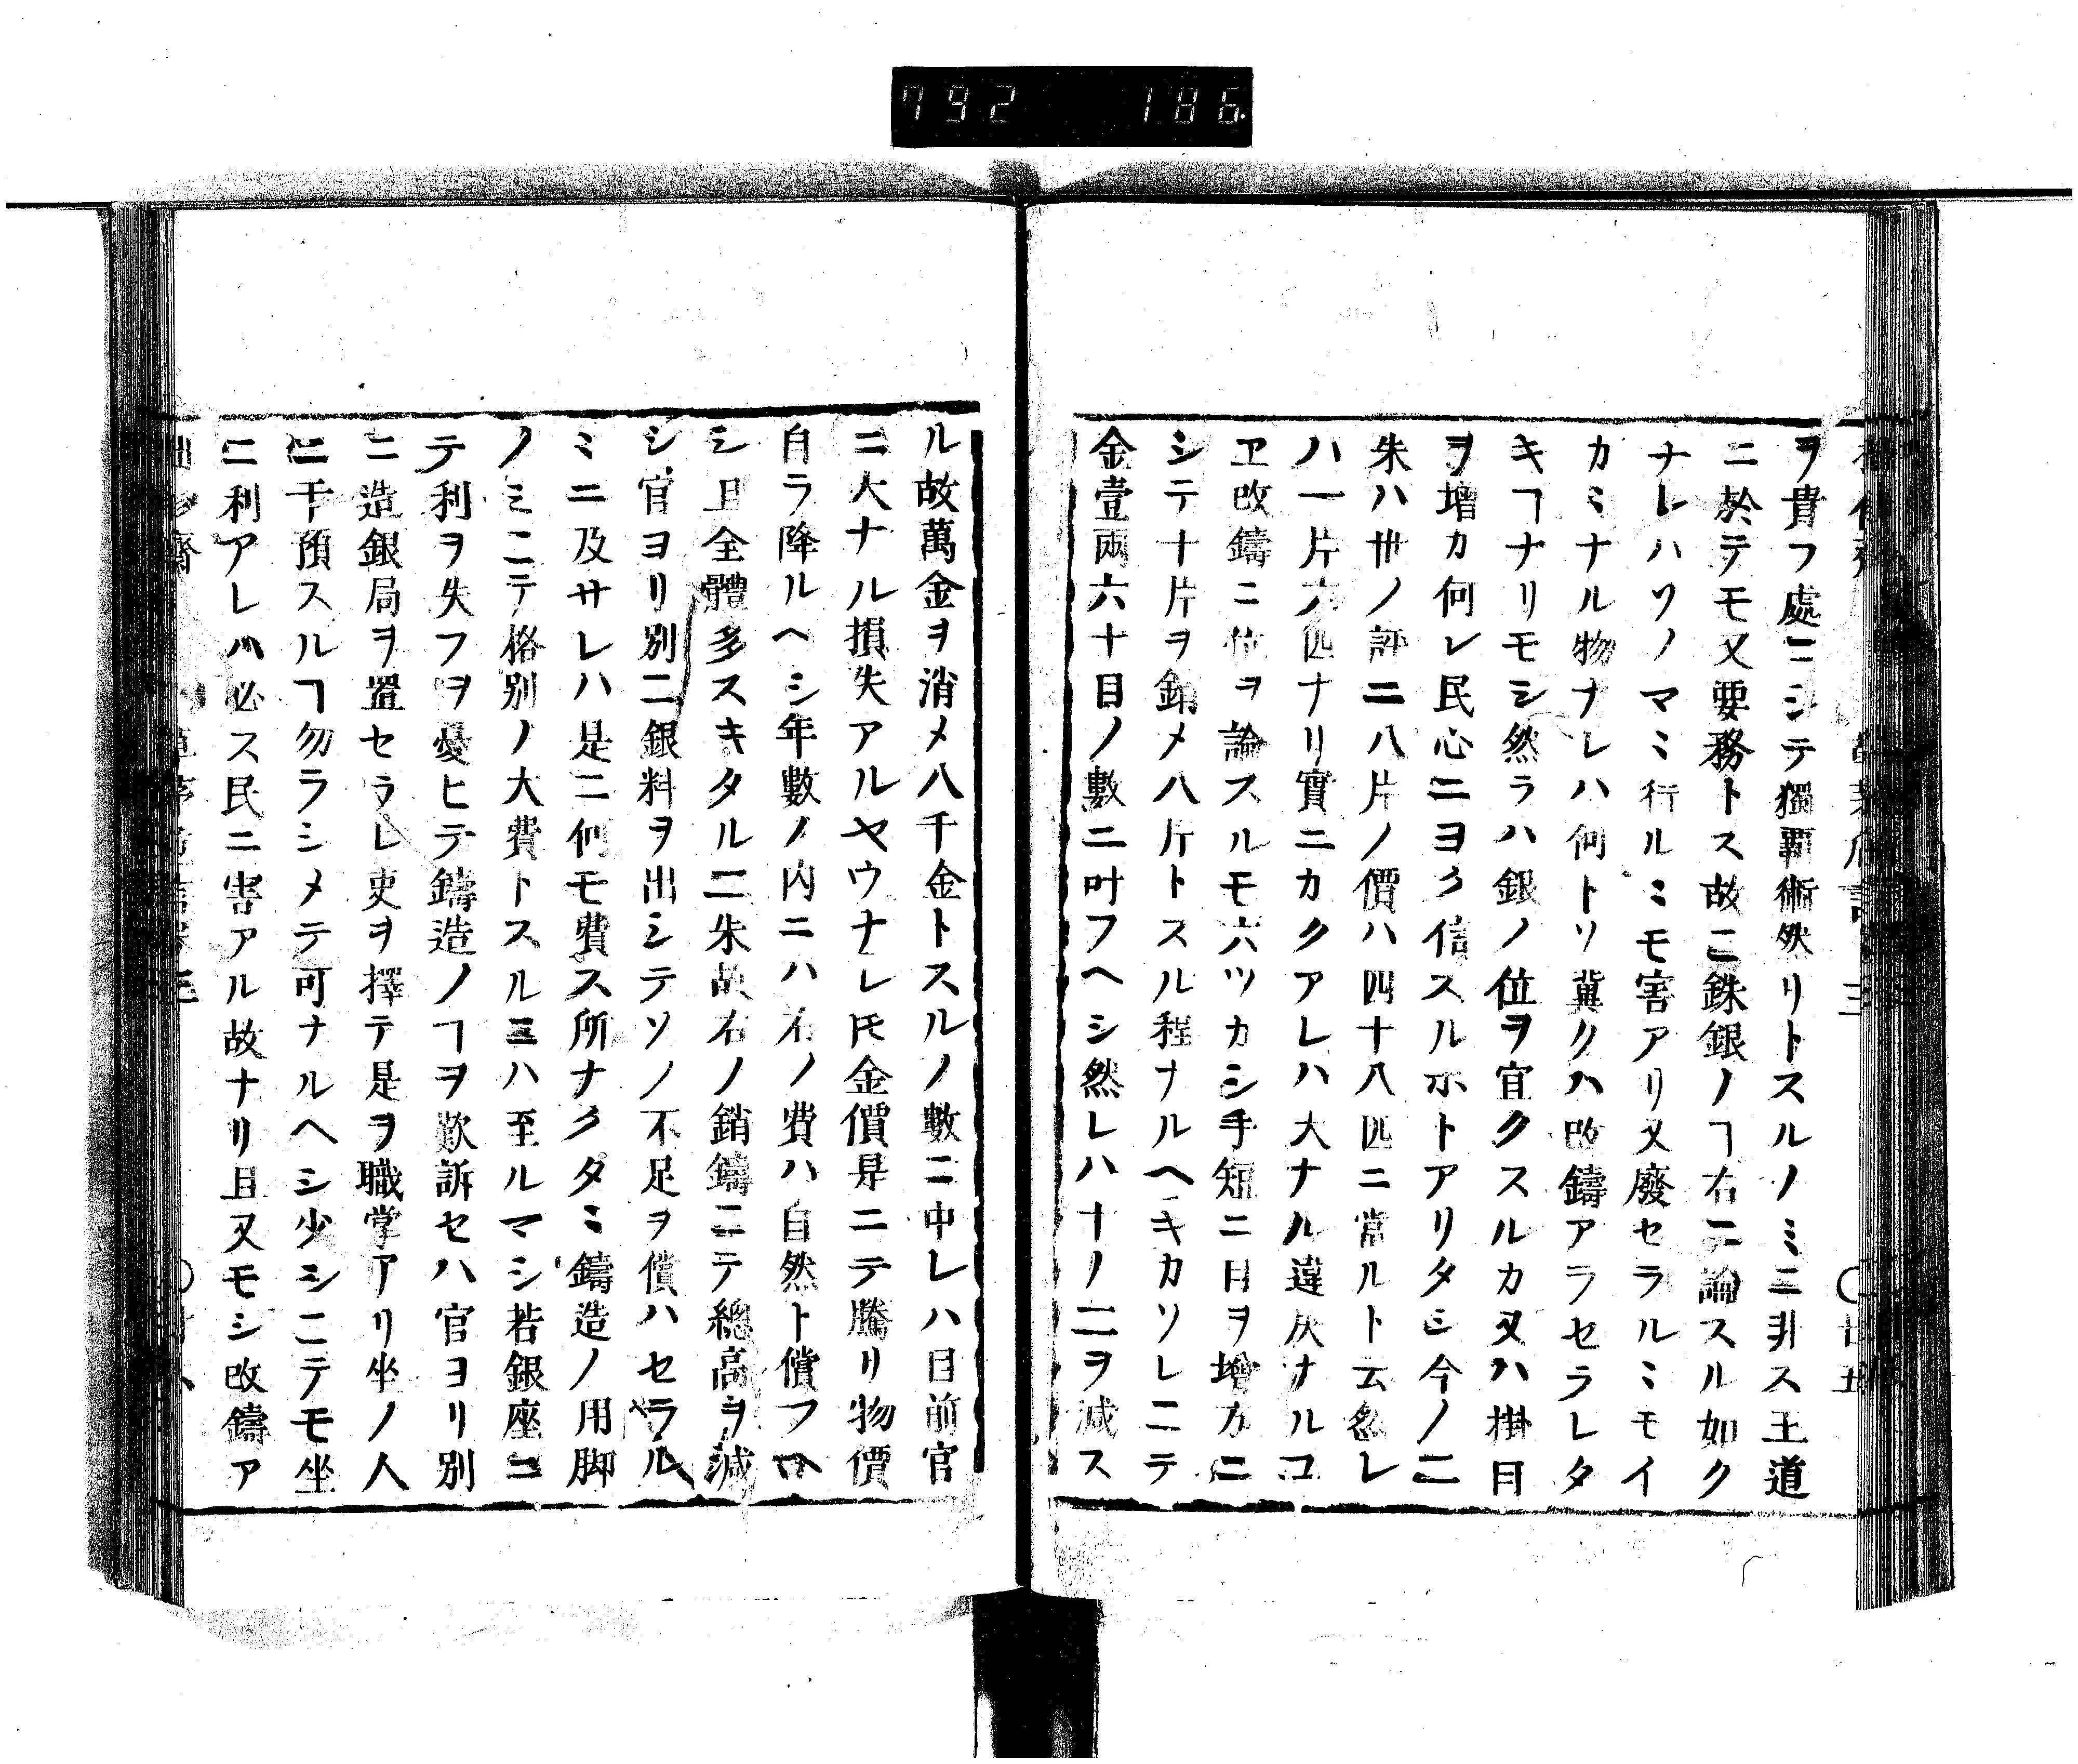 792 186
ヲ貴フ處ニシテ獨覇術然リトスルノミニ非ス王道
ニ於テモ又要務トス故ニ銖銀ノヿ右ニ論スル如ク
ナレハソノマミ行ルミモ害アリ又廢セラルミモイ
カミナル物ナレハ何トソ冀クハ改鑄アラセラレタ
キヿナリモシ然ラハ銀ノ位ヲ宜クスルカ又ハ掛目
ヲ增カ何レ民心ニヨク信スルホトアリタシ今ノ二
朱ハ世ノ評ニ八片ノ價ハ四十八匹ニ當ルト云然レ
ハ一片六匹ナリ實ニカクアレハ大ナル違灰ナルユ
ヱ改鑄ニ位ヲ論スルモ六ツカシ手短ニ目ヲ增方ニ
シテ十片ヲ銷メ八片トスル程ナルヘキカソレニテ
金壹兩六十目ノ數ニ叶フヘシ然レハ十ノ二ヲ減ス
ル故萬金ヲ消メ八千金トスルノ數ニ中レハ目前官
ニ大ナル損失アルヤウナレ𪜈金價是ニテ騰リ物價
自ラ降ルヘシ年數ノ内ニハ右ノ費ハ自然ト償フヘ
シ且全體多スキタル二朱故右ノ銷鑄ニテ總高ヲ減
シ官ヨリ別ニ銀料ヲ出シテソノ不足ヲ償ハセラル
ミニ及サレハ是ニ何モ費ス所ナクタミ鑄造ノ用脚
ノミニテ格別ノ大費トスルミハ至ルマシ若銀座ニ
テ利ヲ失フヲ憂ヒテ鑄造ノヿヲ歎訴セハ官ヨリ別
ニ造銀局ヲ置セラレ吏ヲ擇テ是ヲ職掌アリ坐ノ人
ニ干預スルヿ勿ラシメテ可ナルヘシ少シニテモ坐
ニ利アレハ必ス民ニ害アル故ナリ且又モシ改鑄ア